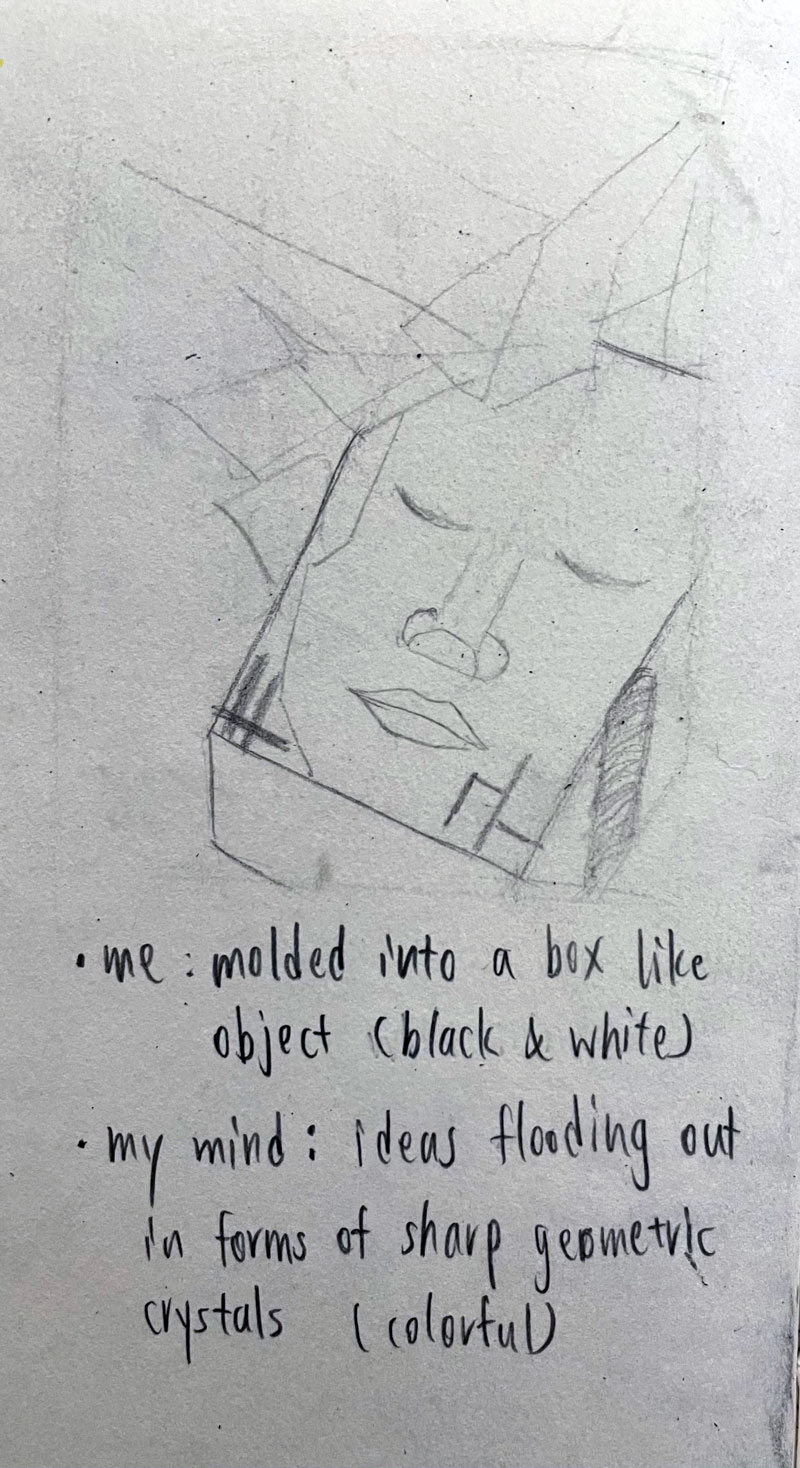 • me : molded into a box like
object (black & white)
• my mind : ideas flooding out
in forms of sharp geometric
crystals (colorful)